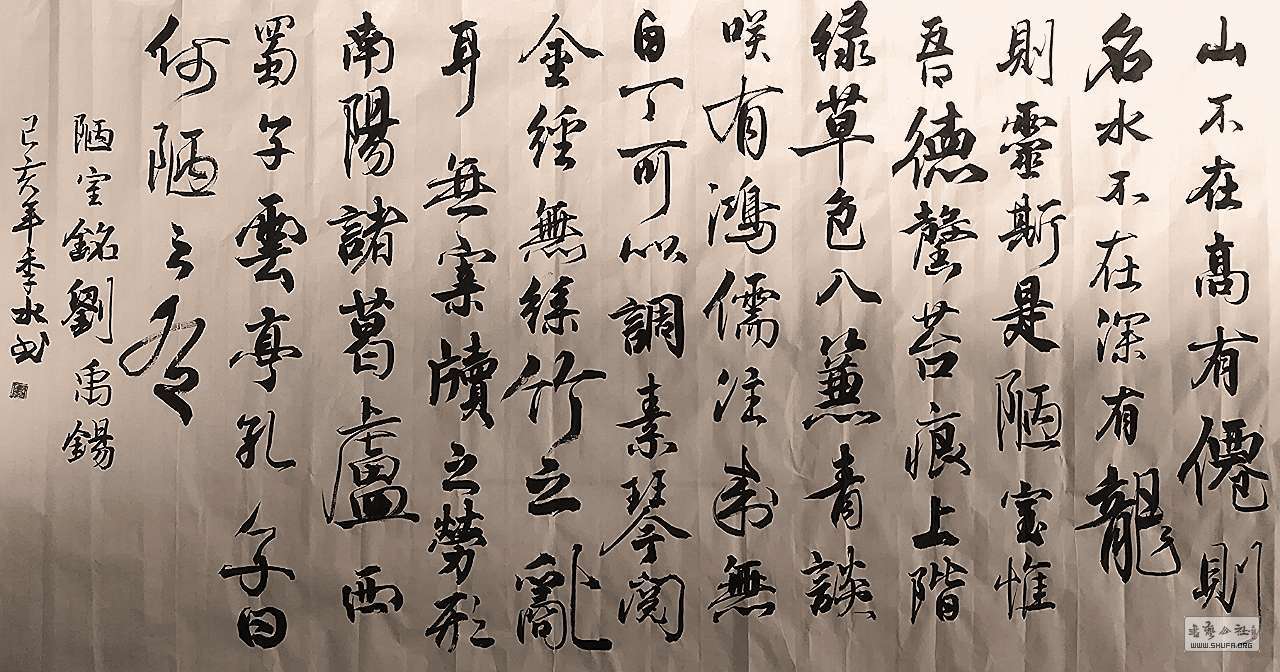 山不在高有僊則
名水不在深有龍
則靈斯是陋室惟
吾德馨苔痕上階
緑草色入簾青談
咲有鴻儒往来無
白丁可以調素琴閲
金經無絲竹之亂
耳無案牘之勞形
南陽諸葛盧西
蜀子雲亭孔子曰
何陋之有
陋室銘劉禹錫
己亥年季水书
WWW.SHUFA.ORG